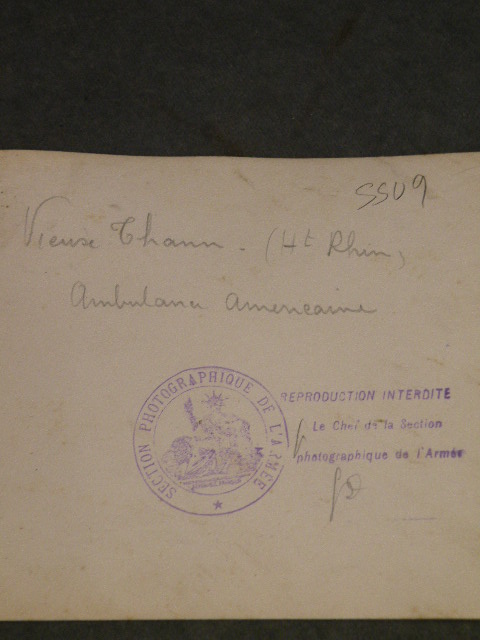 SSU 9
Vieux Thann - (Ht Rhin)
Ambulance américaine
SECTION PHOTOGRAPHIQUE DE L'ARMÉE
REPRODUCTION INTERDITE
Le Chef de la Section
photographique de l'Armée